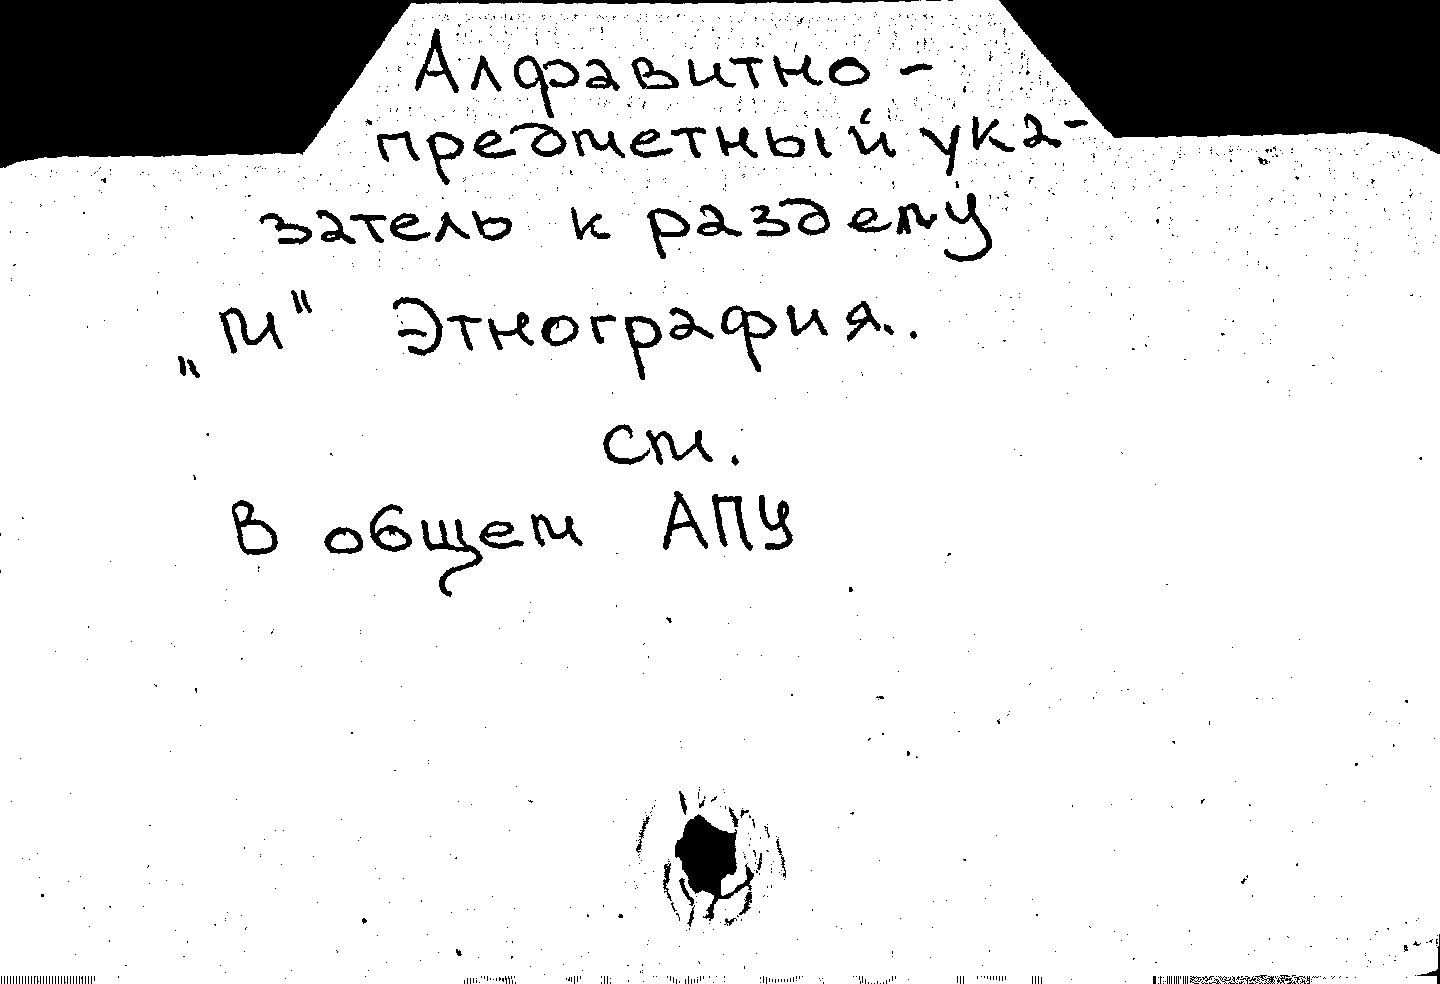 Алфавитно-
предметный ука-
затель к разделу
„М" Этнография..
см.
В общем АПУ